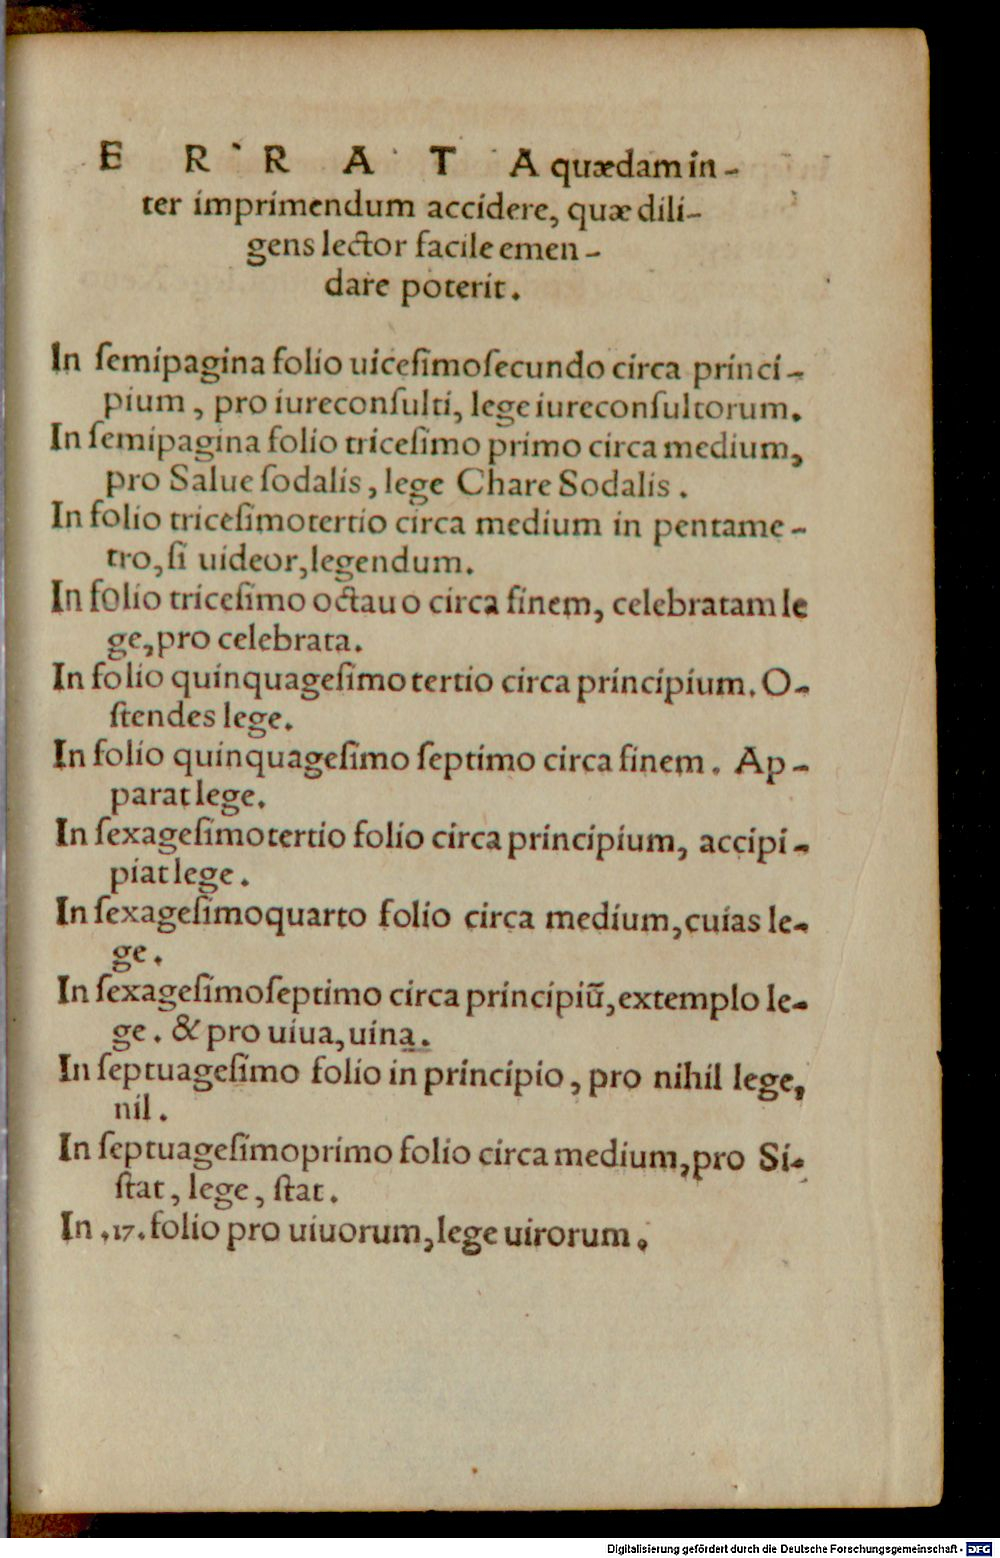 E R R A T A quædam in-
ter imprimendum accidere, quæ dili-
gens lector facile emen-
dare poterit.
In ſemipagina folio uiceſimoſecundo circa princi-
pium, pro iureconſulti, lege iureconſultorum.
In ſemipagina folio triceſimo primo circa medium,
pro Salue ſodalis, lege Chare Sodalis.
In folio triceſimotertio circa medium in pentame-
tro, ſi uideor, legendum.
In folio triceſimo octauo circa finem, celebratam le
ge, pro celebrata.
In folio quinquageſimo tertio circa principium. O-
ſtendes lege.
In folio quinquageſimo ſeptimo circa finem. Ap-
parat lege.
In ſexageſimotertio folio circa principium, accipi-
piat lege.
In ſexageſimoquarto folio circa medium, cuias le-
ge.
In ſexageſimoſeptimo circa principiū, extemplo le-
ge. & pro uiua, uina.
In ſeptuageſimo folio in principio, pro nihil lege,
nil.
In ſeptuageſimoprimo folio circa medium, pro Si-
ſtat, lege, ſtat.
In .17. folio pro uiuorum, lege uirorum.
Digitalisierung gefördert durch die Deutsche Forschungsgemeinschaft - DFG